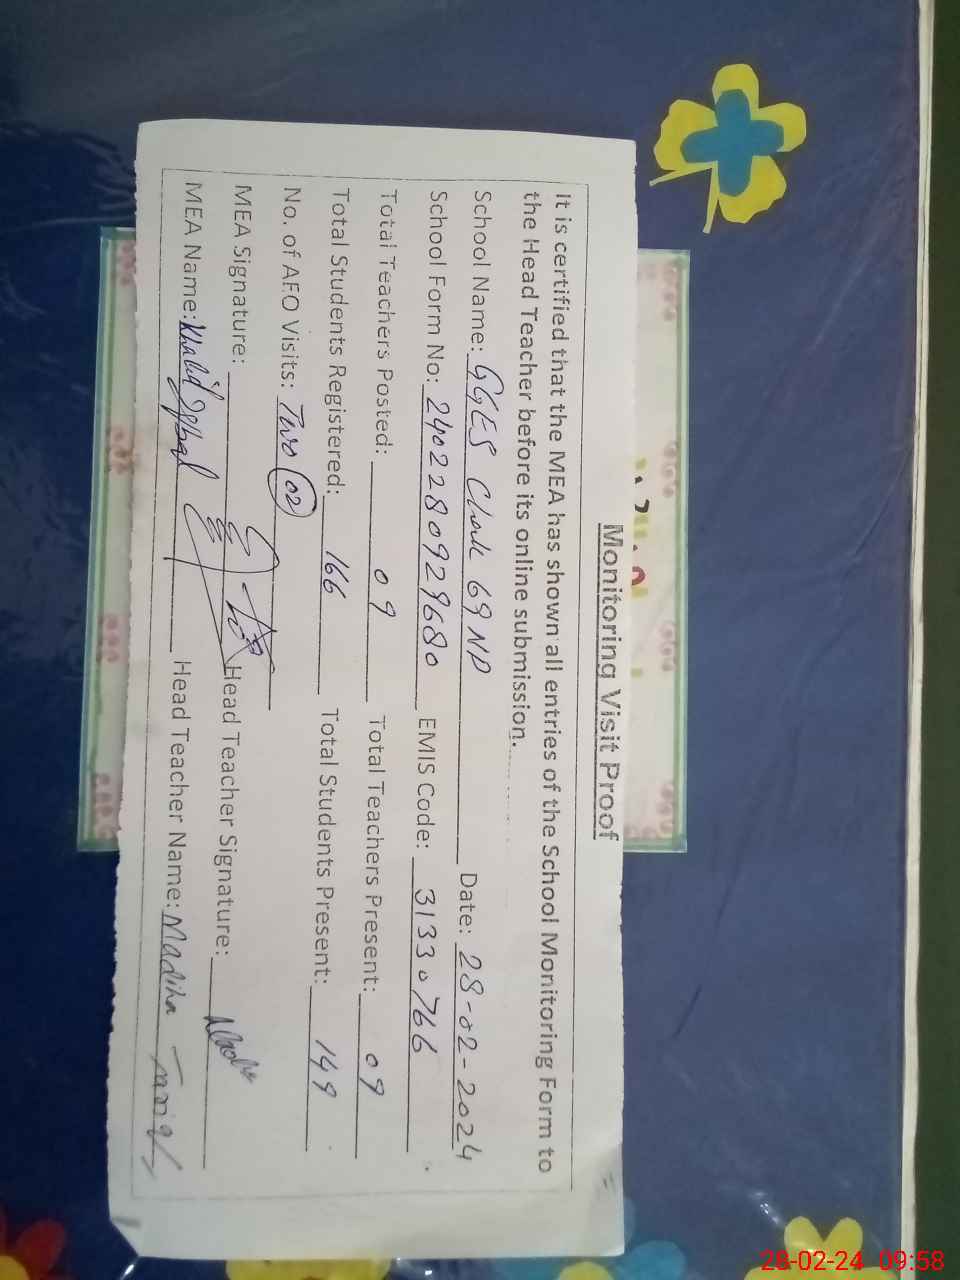 Monitoring Visit Proof
It is certified that the MEA has shown all entries of the School Monitoring Form to
the Head Teacher before its online submission.
School Name: GGES Chak 69 NP Date: 28-02-2024
School Form No: 2402280929680 EMIS Code: 31330766
Total Teachers Posted: 09 Total Teachers Present: 09
Total Students Registered: 166 Total Students Present: 149
No. of AEO Visits: Two (02)
MEA Signature: Head Teacher Signature:
MEA Name: Khalid Iqbal Head Teacher Name: Madiha Tariq
28-02-24 09:58